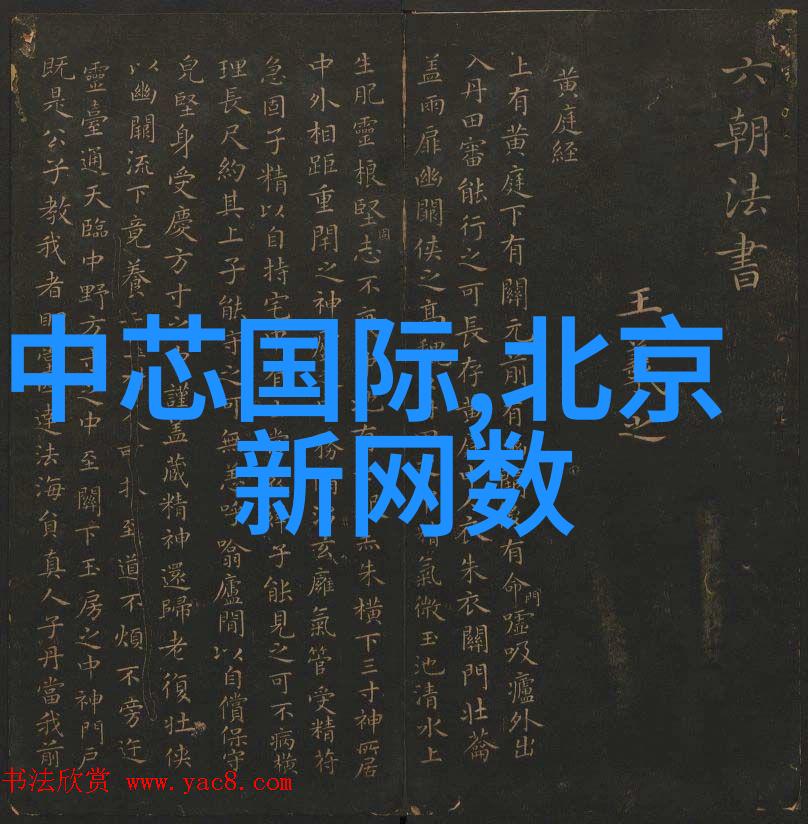 六朝法書
王羲之
黄庭経
上有黄庭下有關元前有有命門嘘吸廬外出
入丹田審能行之可長存黄衣朱衣關門壮籥
盖雨扉幽闕侠之高氣微玉池清水上
生肥靈根堅志固不朱横下三寸神所居
中外相距重閇之神務玄廱氣管受精符
急固子精以自持宅子能見之可不病横
理長尺約其上子能守之可無恙呼噏廬間以自償保守
皃堅身受慶方寸謹盖藏精神還歸老復壮侠
以幽闕流下竟養至道不煩不旁迕
靈臺通天臨中野方之中至關下玉房之中神門戸
既是公子教我者達法海負真人子丹當我前
中芯国际,北京
新网数
书法欣赏 www.yac8.com